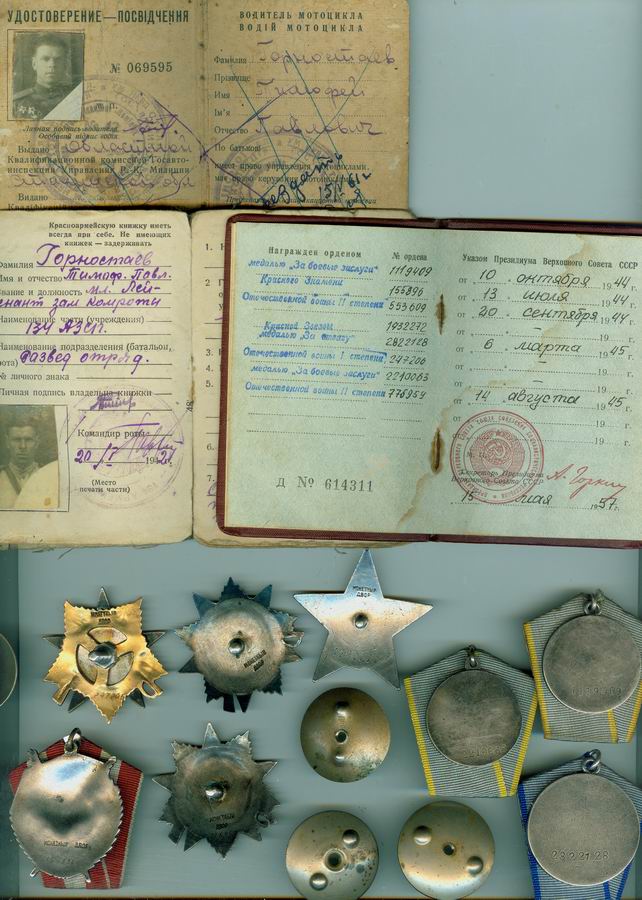 УДОСТОВЕРЕНИЕ—ПОСВІДЧЕННЯ
№ 069595
Личная подпись водителя
Особовий підпис водія
Выдано
Квалификационной комиссией Госавто-
инспекции Управления Р. К. Милиции
Видано
ВОДИТЕЛЬ МОТОЦИКЛА
ВОДІЙ МОТОЦИКЛА
Фамилия Горностаев
Прізвище
Имя Тимофей
Ім'я
Отчество Павлович
По батькові
имеет право управления мотоциклами.
має право керування мотоциклами.
Красноармейскую книжку иметь
всегда при себе. Не имеющих
книжек — задерживать
Фамилия Горностаев
Имя и отчество Тимоф. Павл.
Звание и должность мл. Лей-
тенант зам комроты
Наименование части (учреждения)
134 АЗСП.
Наименование подразделения (батальон,
рота) развед отряд.
№ личного знака
Личная подпись владельца книжки
Командир роты
(Место
печати части)
1.
2.
3.
4.
5.
6.
7.
Награжден орденом № ордена
медалью „За боевые заслуги" 1119409
Красного Знамени 155896
Отечественной войны II степени 553609
Красной Звезды 1932272
медалью „За отвагу" 2822128
Отечественной войны I степени 247206
медалью „За боевые заслуги" 2210063
Отечественной войны II степени 776959
Д № 614311
Указом Президиума Верховного Совета СССР
от 10 октября 1944
от 13 июля 1944
от 20 сентября 1944
от 6 марта 1945
от 14 августа 1945
Секретарь Президиума
Верховного Совета СССР
А. Горкин
15 мая 1957 г.
МОНЕТНЫЙ
ДВОР
МОНЕТНЫЙ
ДВОР
МОНЕТНЫЙ
ДВОР
МОНЕТНЫЙ ДВОР
МОНЕТНЫЙ
ДВОР
2822128